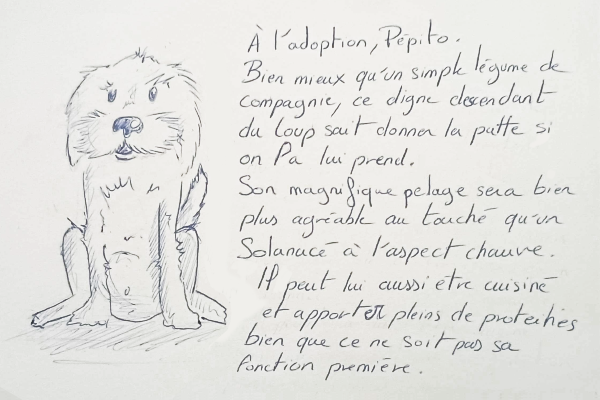 À l'adoption, Pépito.
Bien mieux qu'un simple légume de
compagnie, ce digne descendant
du loup sait donner la patte si
on Pa lui prend.
Son magnifique pelage sera bien
plus agréable au touché qu'un
Solanacé à l'aspect chauve.
Il peut lui aussi être cuisiné
et apporter pleins de protéines
bien que ce ne soit pas sa
fonction première.